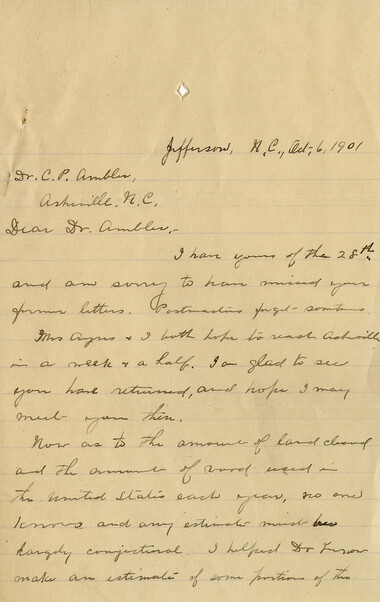 Jefferson, N.C., Oct, 6, 1901
Dr. C. P. Ambler,
Asheville, N.C.
Dear Dr. Ambler,-
I have yours of the 28th
and am sorry to have missed your
former letters. Postmasters forget sometimes.
Mrs Ayres & I both hope to reach Asheville
in a week & a half. I am glad to see
you have returned, and hope I may
meet you then.
Now as to the amount of land cleared
and the amount of wood used in
the United States each year, no one
knows and any estimate must be
largely conjectural. I helped Dr
make an estimate of some portions of this